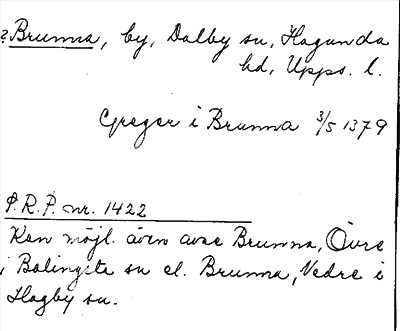 ? Brunna, by, Dalby sn, Hagunda
hd, Upps. l.
Greger i Brunna 3/5 1379
P.R.P. nr. 1422
Kan möjl. även avse Brunna, Övre
i Balingsta sn el. Brunna, Nedre i
Hagby sn.